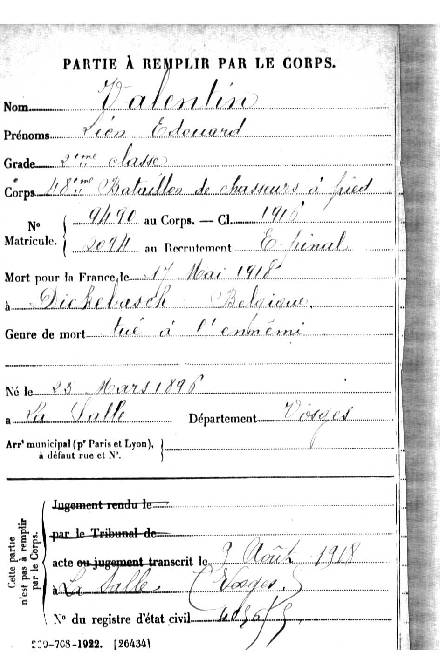 PARTIE À REMPLIR PAR LE CORPS.
Nom Valentin
Prénoms Léon Edouard
Grade 2ème classe
Corps 48ème Bataillon de chasseurs à pied
No Matricule. { 9490 au Corps. — Cl. 1916
2094 au Recrutement Epinal
Mort pour la France, le 17 Mai 1918
à Dickebusch Belgique
Genre de mort tué à l'ennemi
Né le 23 Mars 1896
a La Salle Département Vosges
Arrt municipal (pr Paris et Lyon), à défaut rue et No.
Cette partie n'est pas à remplir par le Corps.
Jugement rendu le
par le Tribunal de
acte ou jugement transcrit le 9 Août 1918
à La Salle (Vosges)
No du registre d'état civil
-708-1922. [26434]